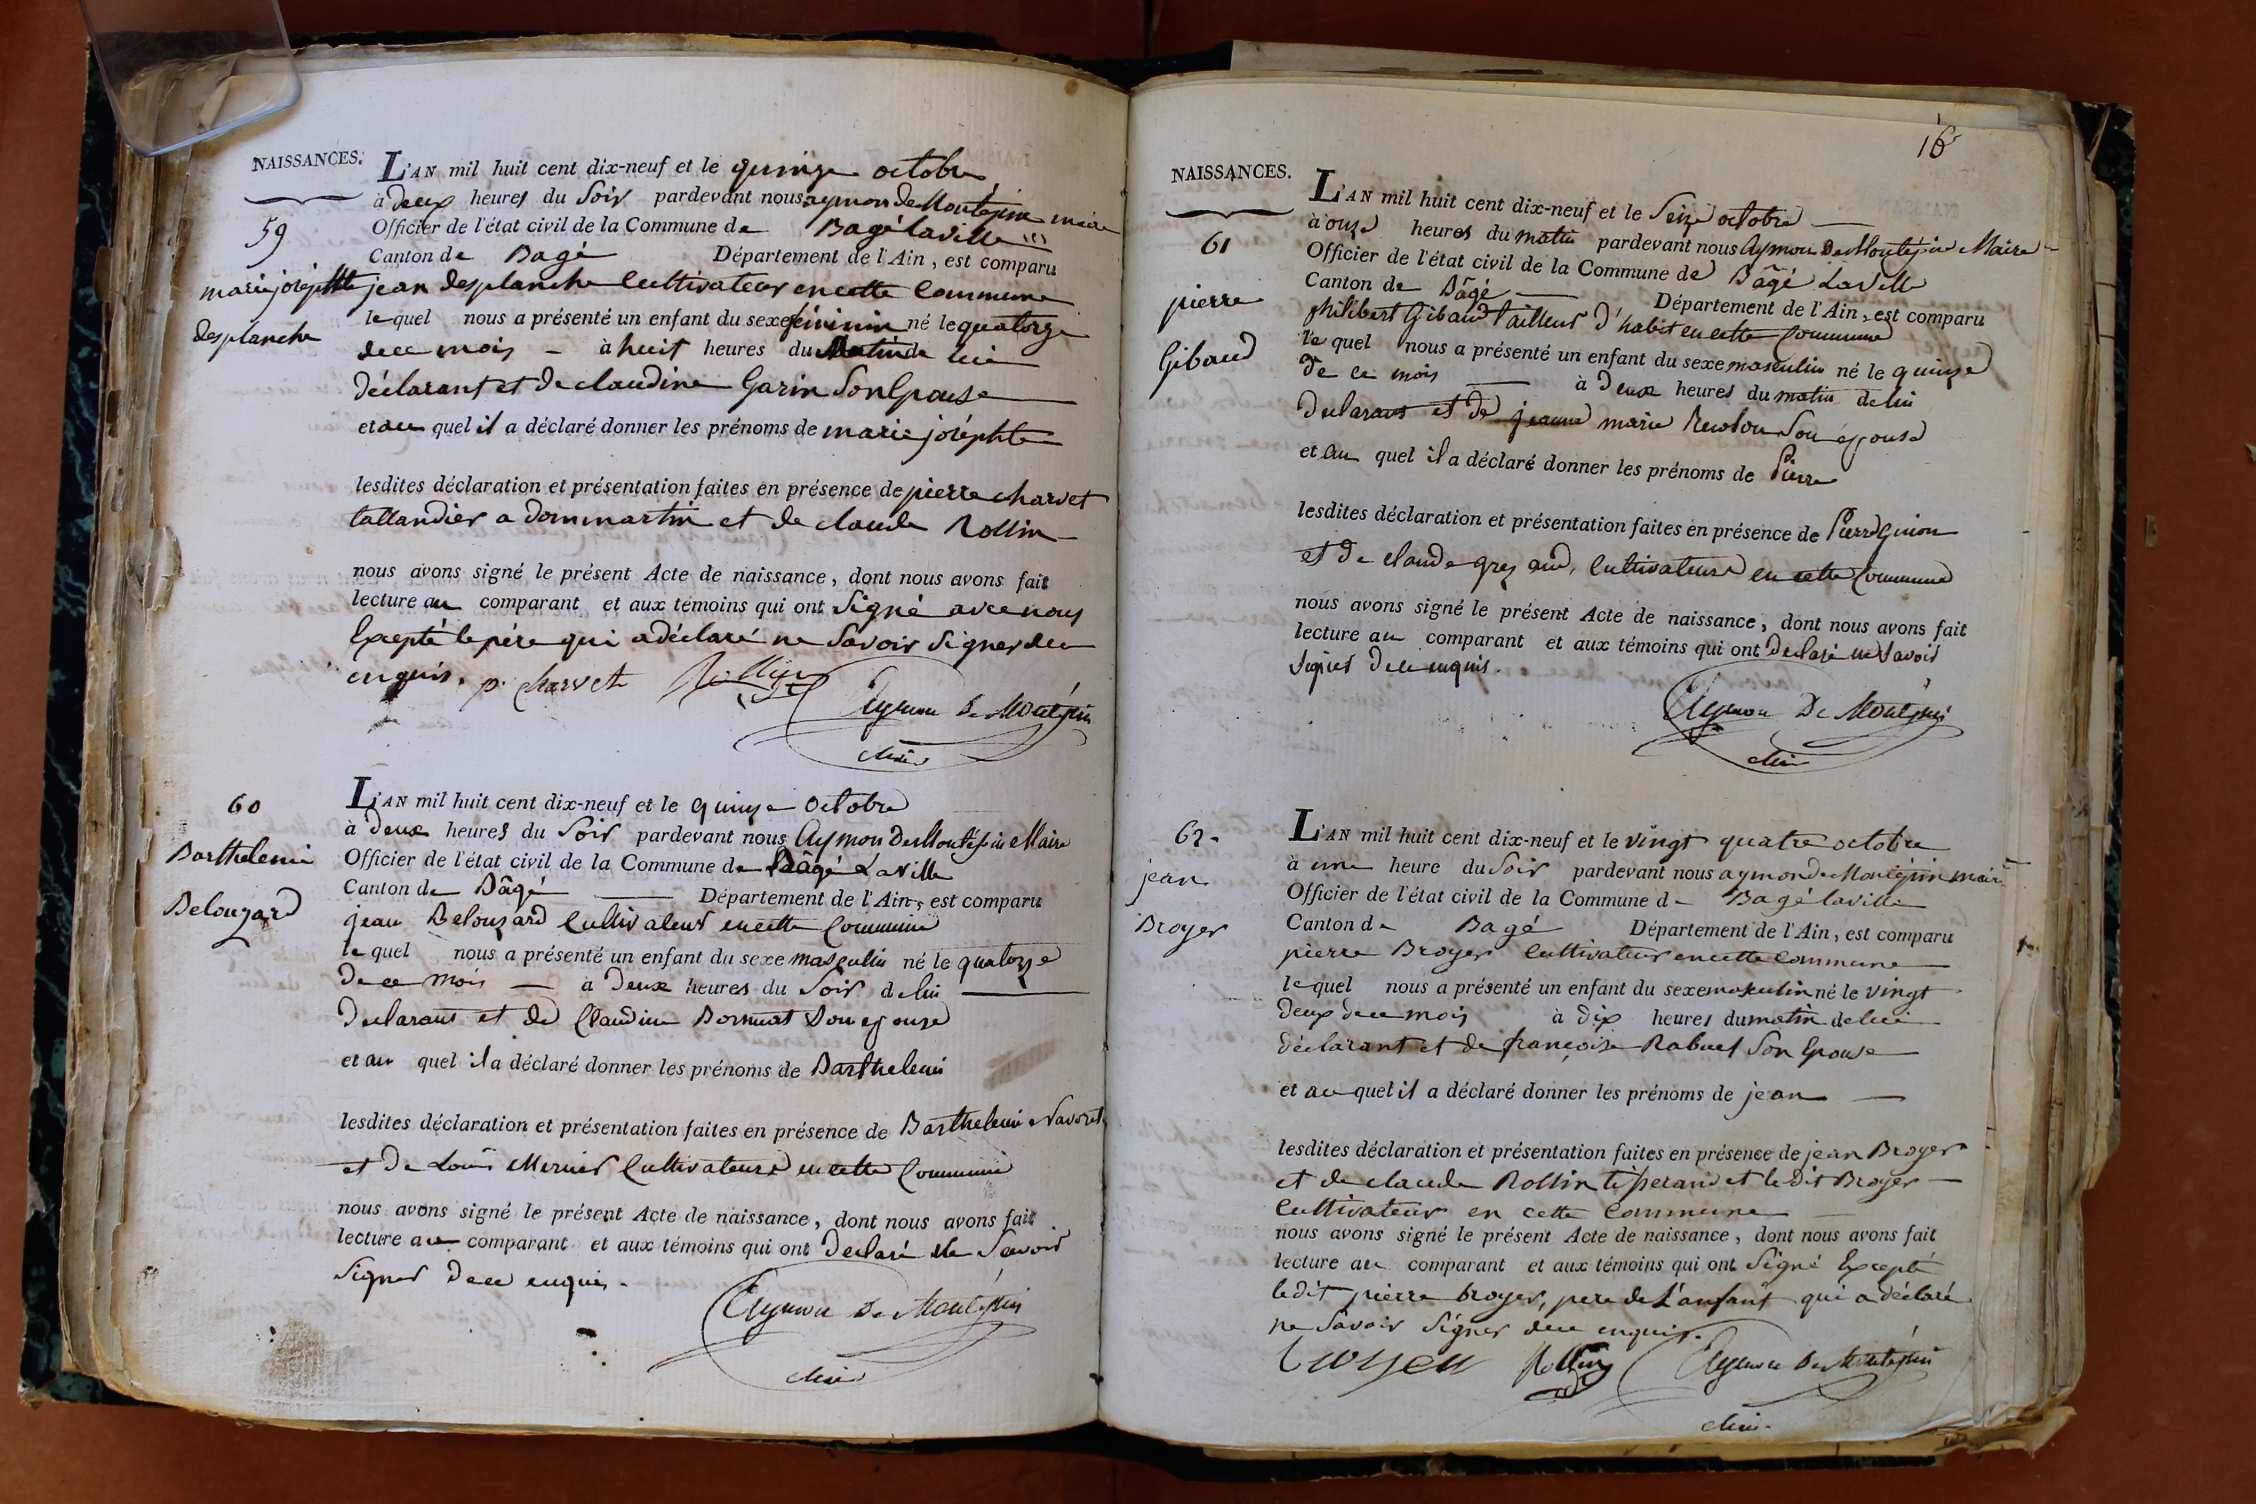 NAISSANCES.
59
marie joséphte
desplanche
L'AN mil huit cent dix-neuf et le quinze octobre
à deux heures du Soir pardevant nous aymon de Montépin maire
Officier de l'état civil de la Commune de Bagé laville
Canton de Bagé Département de l'Ain, est comparu
jean desplanche Cultivateur en cette Commune
lequel nous a présenté un enfant du sexe féminin né le quatorze
de ce mois - à huit heures du Matin de lui
déclarant et de claudine Garin Son Epouse
et au quel il a déclaré donner les prénoms de marie joséphte
lesdites déclaration et présentation faites en présence de pierre charvet
tallandier a dommartin et de claude Rollin
nous avons signé le présent Acte de naissance, dont nous avons fait
lecture au comparant et aux témoins qui ont Signé avec nous
Excepté le père qui a déclaré ne Savoir Signer de ce
enquis. p. charvet Rollin
Aymon De Montépin
Maire
60
Barthelemi
Belouzard
L'AN mil huit cent dix-neuf et le quinze Octobre
à Deux heures du Soir pardevant nous Aymon De Montépin Maire
Officier de l'état civil de la Commune de Bâgé Laville
Canton de Bâgé Département de l'Ain, est comparu
jean Belouzard Cultivateur en cette Commune
le quel nous a présenté un enfant du sexe masculin né le quatorze
De ce mois - à Deux heures du Soir de lui
Declarant et de Claudine Son epouse
et au quel il a déclaré donner les prénoms de Barthelemi
lesdites déclaration et présentation faites en présence de Barthelemi Navoret
et De Louis Mernier Cultivateurs en cette Commune
nous avons signé le présent Acte de naissance, dont nous avons fait
lecture au comparant et aux témoins qui ont Declaré ne Savoir
Signer De ce enquis.
Aymon De Montépin
Maire
16
NAISSANCES.
61
pierre
Gibaud
L'AN mil huit cent dix-neuf et le Seize octobre
à onze heures du matin pardevant nous Aymon De Montépin Maire
Officier de l'état civil de la Commune de Bâgé Laville
Canton de Bâgé Département de l'Ain, est comparu
philibert Gibaud tailleur d'habit en cette Commune
le quel nous a présenté un enfant du sexe masculin né le quinze
De ce mois à Deux heures du matin de lui
Declarant et De jeanne marie Son epouse
et au quel il a déclaré donner les prénoms de Pierre
lesdites déclaration et présentation faites en présence de Pierre Guion
et De Claude, Cultivateurs en cette Commune
nous avons signé le présent Acte de naissance, dont nous avons fait
lecture au comparant et aux témoins qui ont Declaré ne Savoir
Signer De ce enquis.
Aymon De Montépin
Maire
62.
jean
Broyer
L'AN mil huit cent dix-neuf et le vingt quatre octobre
à une heure du Soir pardevant nous aymon de Montépin maire
Officier de l'état civil de la Commune de Bagé laville
Canton de Bagé Département de l'Ain, est comparu
pierre Broyer Cultivateur en cette Commune
lequel nous a présenté un enfant du sexe masculin né le vingt
deux de ce mois à dix heures du matin de lui
déclarant et de françoise Rabuel Son Epouse
et au quel il a déclaré donner les prénoms de jean
lesdites déclaration et présentation faites en présence de jean Broyer
et de claude Rollin tisserand et le dit Broyer
Cultivateur en cette Commune
nous avons signé le présent Acte de naissance, dont nous avons fait
lecture au comparant et aux témoins qui ont Signé Excepté
ledit pierre broyer, pere de L'anfant qui a déclaré
ne Savoir Signer de ce enquis.
broyer Rollin Aymon De Montépin
Maire